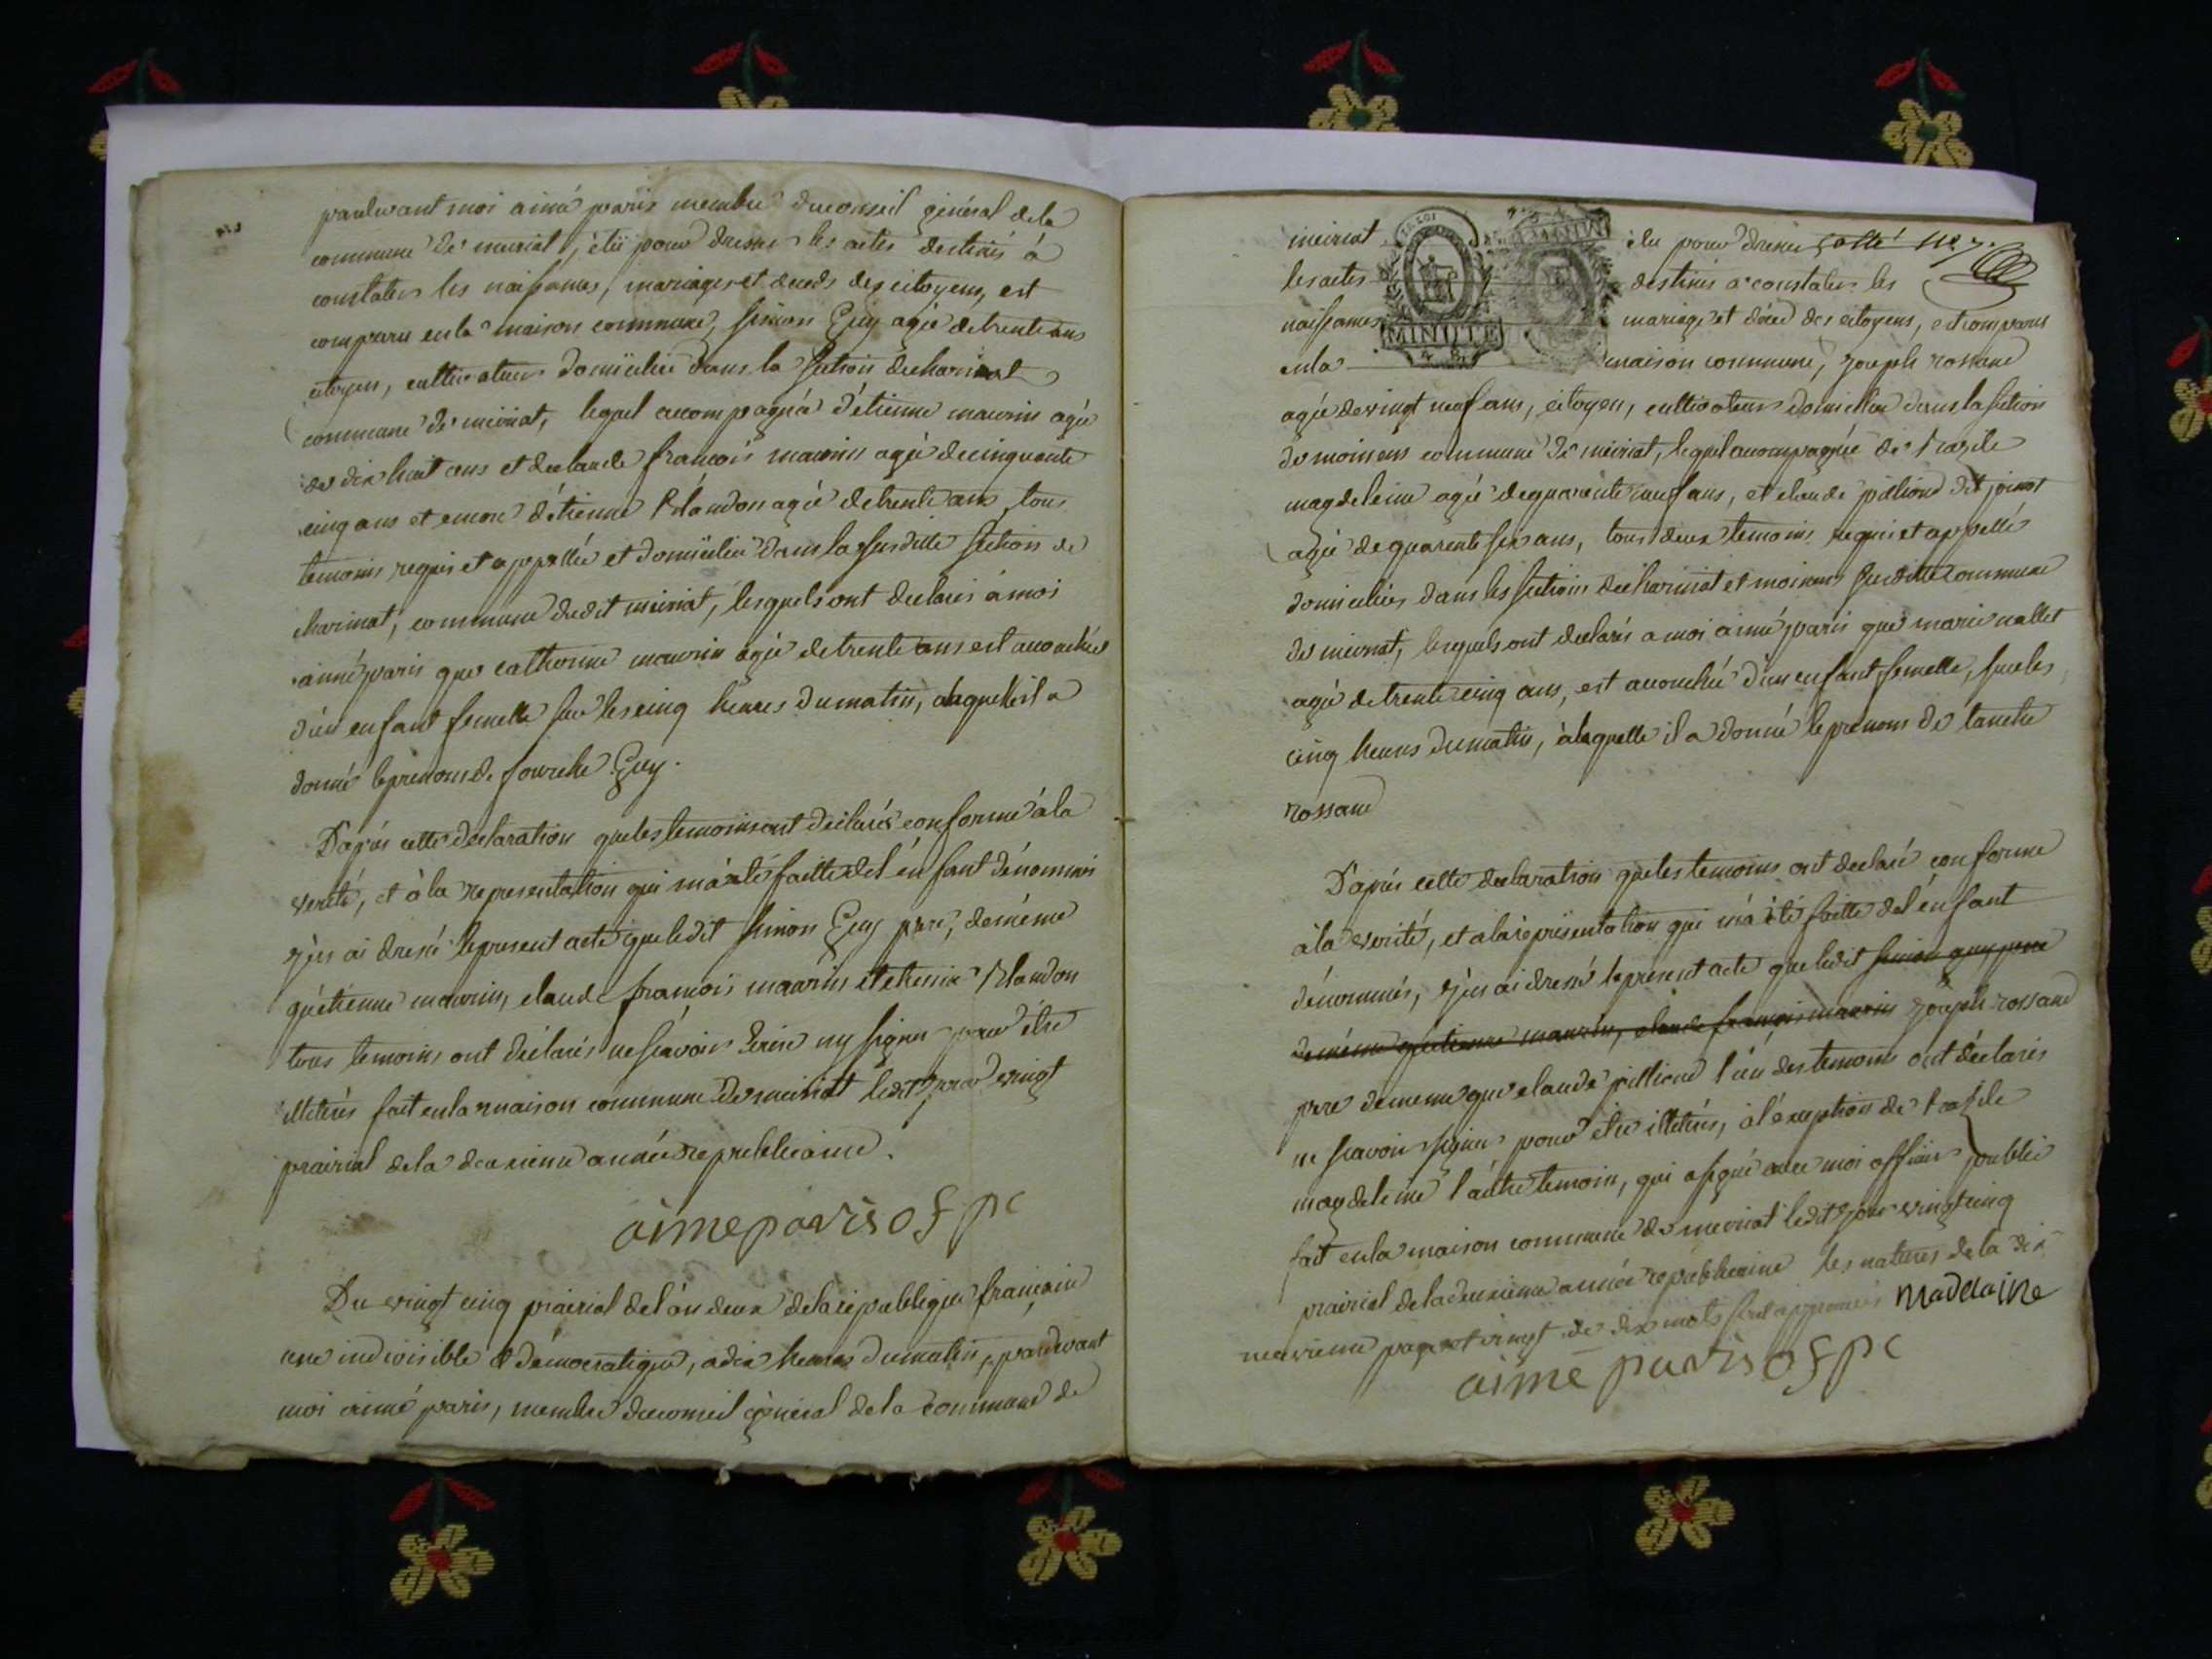 pardevant moi aimé paris membre du conseil général de la
commune de meiriat, élu pour dresser les actes destinés à
constater les naissances, mariages et deceds des citoyens, est
comparu en la maison commune, simon Guy agé de trente ans
citoyen, cultivateur domicilié dans la section de charinat
commune de meiriat, lequel accompagné d'étienne maurin agé
de dix huit ans et de claude françois maurin agé de cinquante
cinq ans et encore d'étienne blandon agé de trente ans tous
temoins requis et appellés et domiciliés dans la susditte section de
charinat, commune dudit meiriat, lesquels ont declaré à moi
aimé paris que catherine maurin agé de trente ans est accouchée
d'un enfant femelle sur les cinq heures du matin, a laquelle il a
donné le prenom de fourche Guy.
D'aprés cette declaration que les temoins ont déclaré conforme à la
verité, et à la representation qui m'a été faitte de l'enfant dénommé
j'en ai dressé le present acte que ledit simon Guy pere, de même
qu'étienne maurin, claude françois maurin et etienne blandon
tous temoins ont déclarés ne scavoir écrire ny signer pour être
illetérés fait en la maison commune de meiriat ledit jour vingt
prairial de la deuxieme année republicaine.
aime paris of pc
Du vingt cinq prairial de l'an deux de la republique française
une indivisible & démocratique, a dix heures du matin, pardevant
moi aimé paris, membre du conseil général de la commune de
meiriat élu pour dresser Cotté 
les actes destinés à constater les
naissances mariage et déced des citoyens, est comparu
MINUTE
en la maison commune, joseph rossand
agé de vingt neuf ans, citoyen, cultivateur domicilié dans la section
de moinans commune de meiriat, lequel accompagnée de 
magdeleine agé de quarante neuf ans, et claude pilliond dit 
agé de quarente six ans, tous deux temoins requis et appellé
domiciliés dans les sections de charinat et moinans susditte commune
de meiriat, lesquels ont declarés a moi aimé paris que marie nallet
agé de trente cinq ans, est accouchée d'un enfant femelle, sur les
cinq heures du matin, à laquelle il a donné le prenom de tanche
rossand
D'aprés cette declaration que les temoins ont declaré conforme
à la verité, et a la representation qui m'a été faitte de l'enfant
dénommés, j'en ai dressé le present acte que ledit simon guy pere
de même qu'étienne maurin, claude françois maurin joseph rossand
pere de meme que claude pilliond l'un des temoins ont déclarés
ne scavoir signer pour etre illetérés, à l'exception de 
magdeleine l'autre temoin, qui a signé avec moi officier public
fait en la maison commune de meiriat ledit jour vingt cinq
prairial de la deuxieme année republicaine les ratures de la dix
neuvieme page de dix mots sont approuvés Madelaine
aime paris of pc